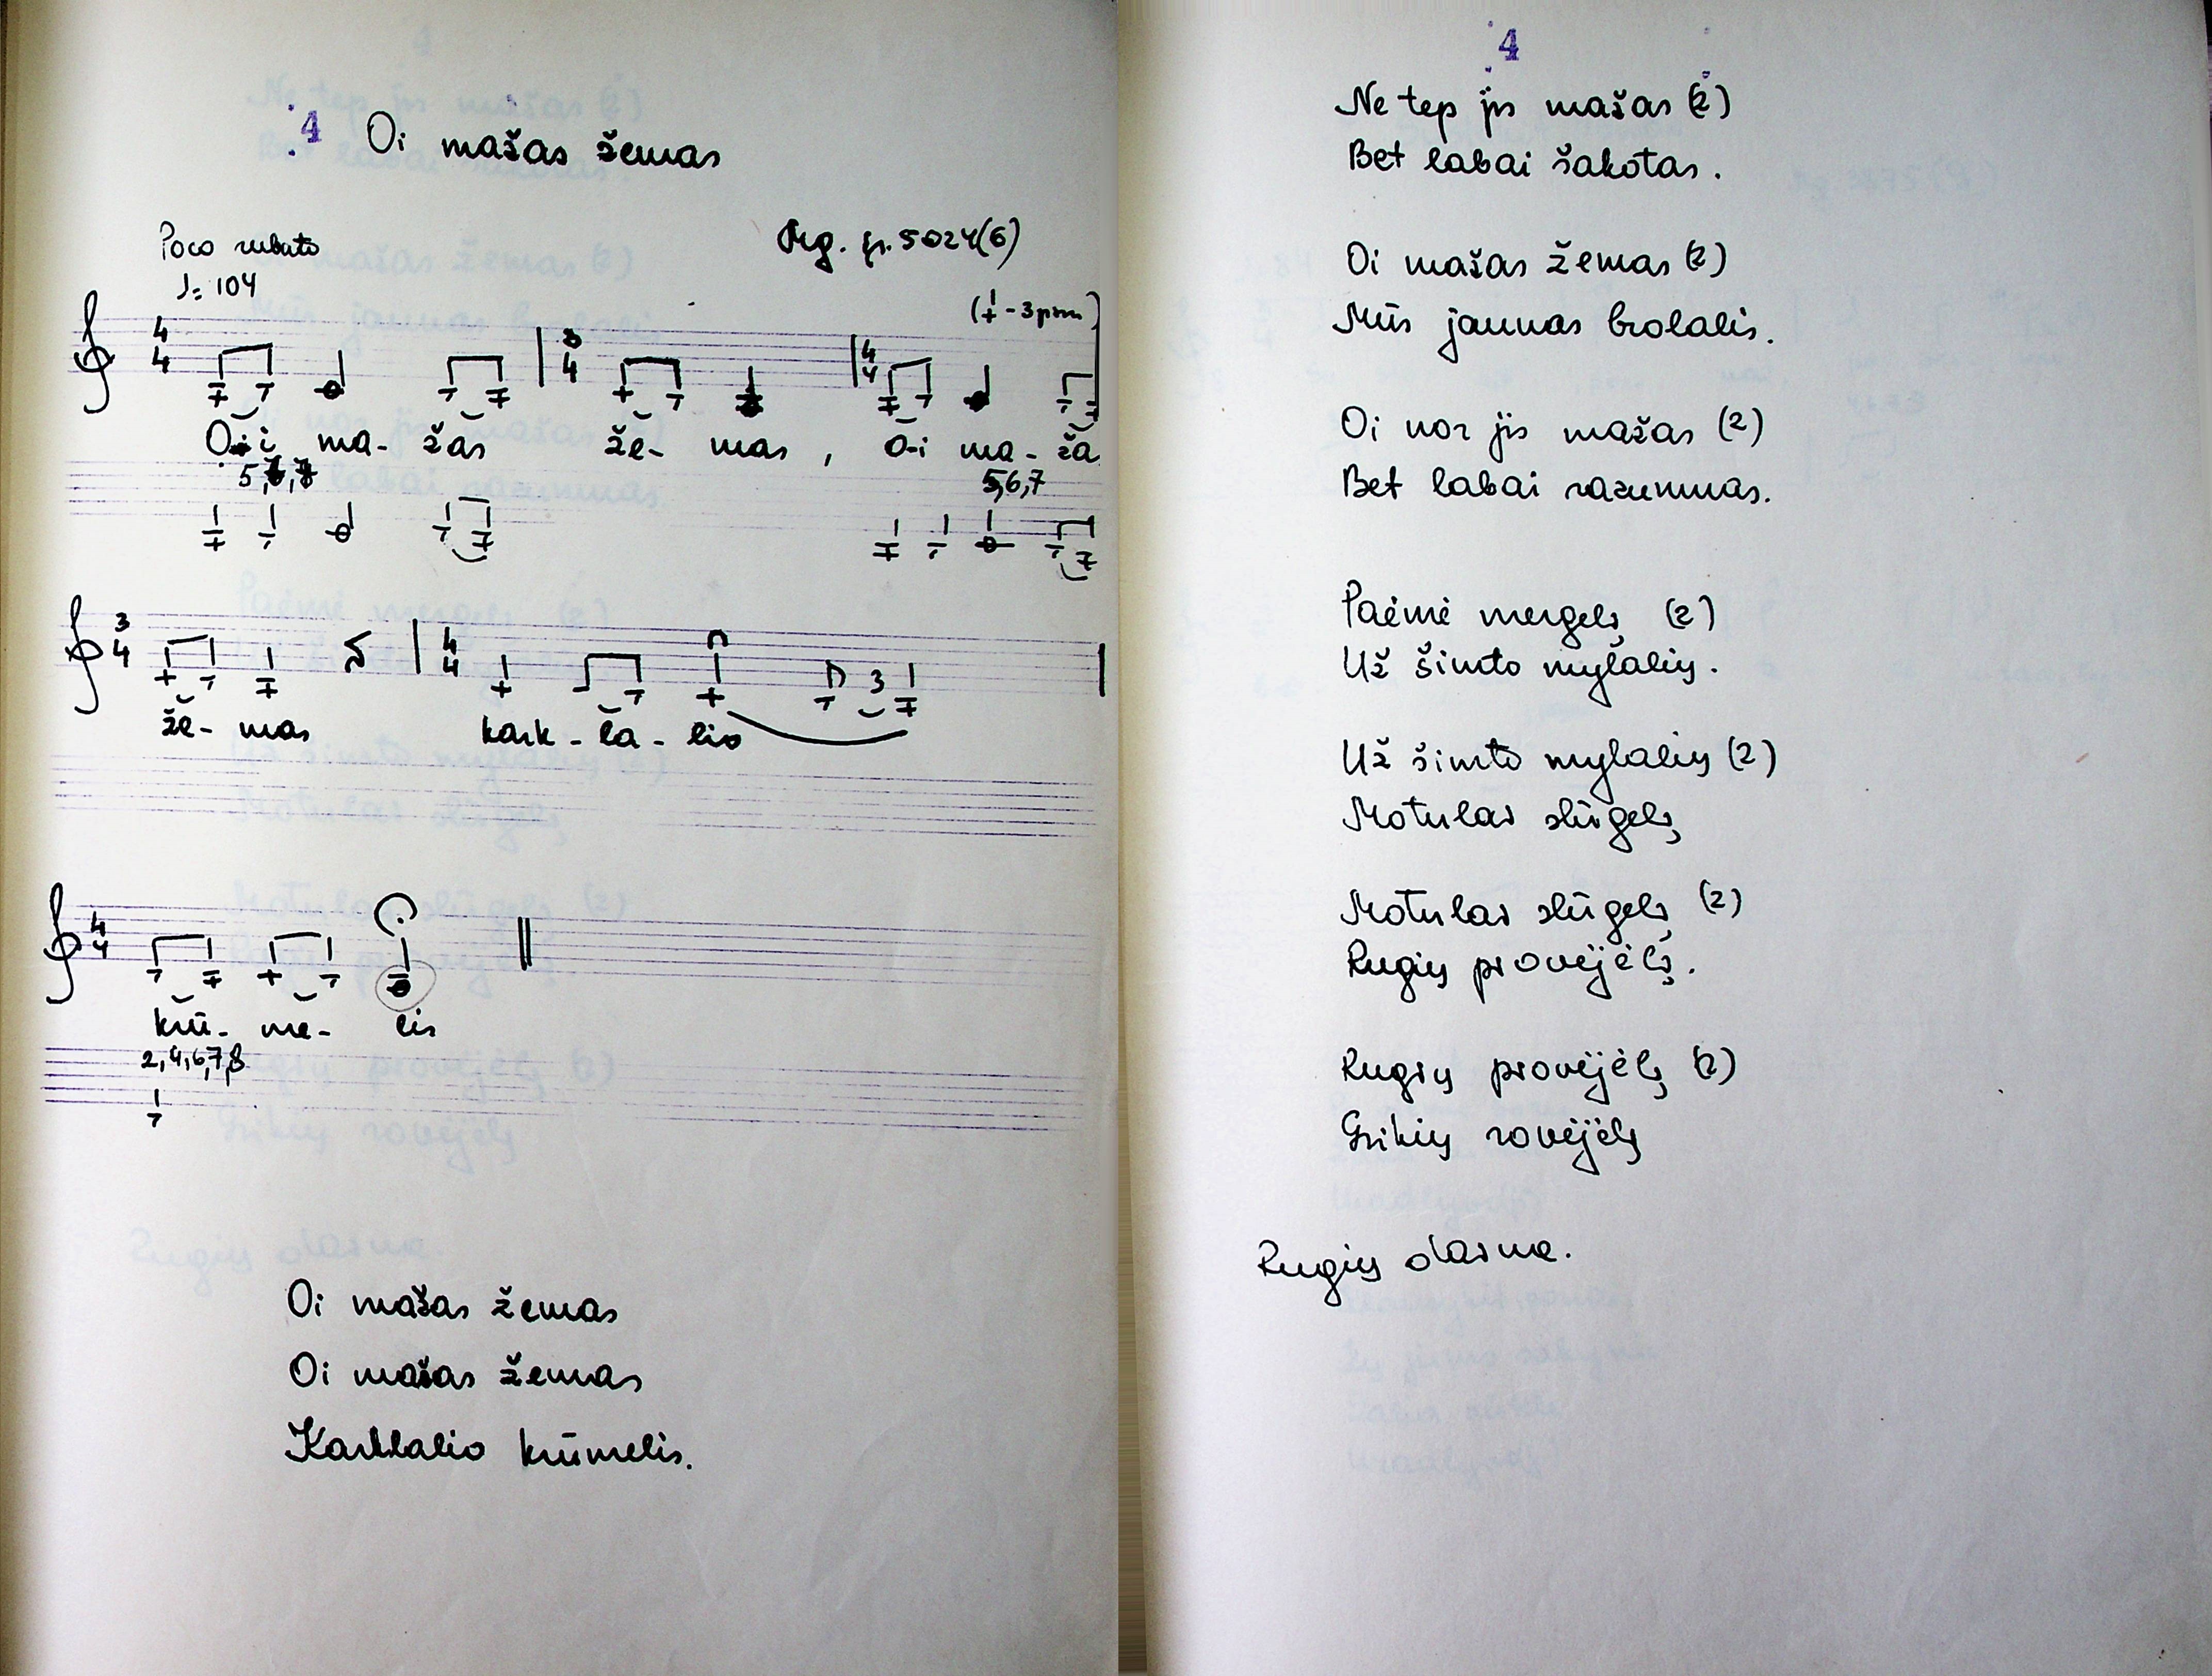 4 Oi mažas žemas
Poco rubato
♩= 104
Mg. fr. 5024(6)
4 4
3 4
4 4
Oi-i ma-žas že-mas, O-i ma-ža
5,6,7
3 4
4 4
že-mas kark-la-lio
3
4 4
krū-me-lis
2,4,6,7,8
Oi mažas žemas
Oi mažas žemas
Karklalio krūmelis.
4
Ne tep jis mažas (2)
Bet labai šakotas.
Oi mažas žemas (2)
Mūs jaunas brolalis.
Oi nor jis mažas (2)
Bet labai razumnas.
Paėmė mergelį (2)
Už šimto mylalių.
Už šimto mylalių (2)
Motulas slūgelį
Motulas slūgelį (2)
Rugių provėjėlį.
Rugių provėjėlį (2)
Grikių rovėjėlį
Rugių daina.